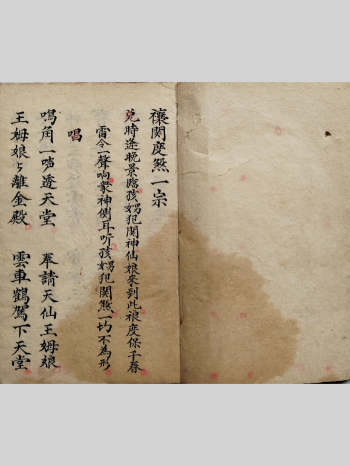 禳関度煞一宗
兒時逢晚景臨孩童犯関神仙娘來到此禳度保千春
雷令一聲响眾神側耳听孩童犯関煞一切不為形
唱
鳴角一哨透天堂 奉請天仙王姆娘
王姆娘〻離金殿 雲車鶴駕下天堂